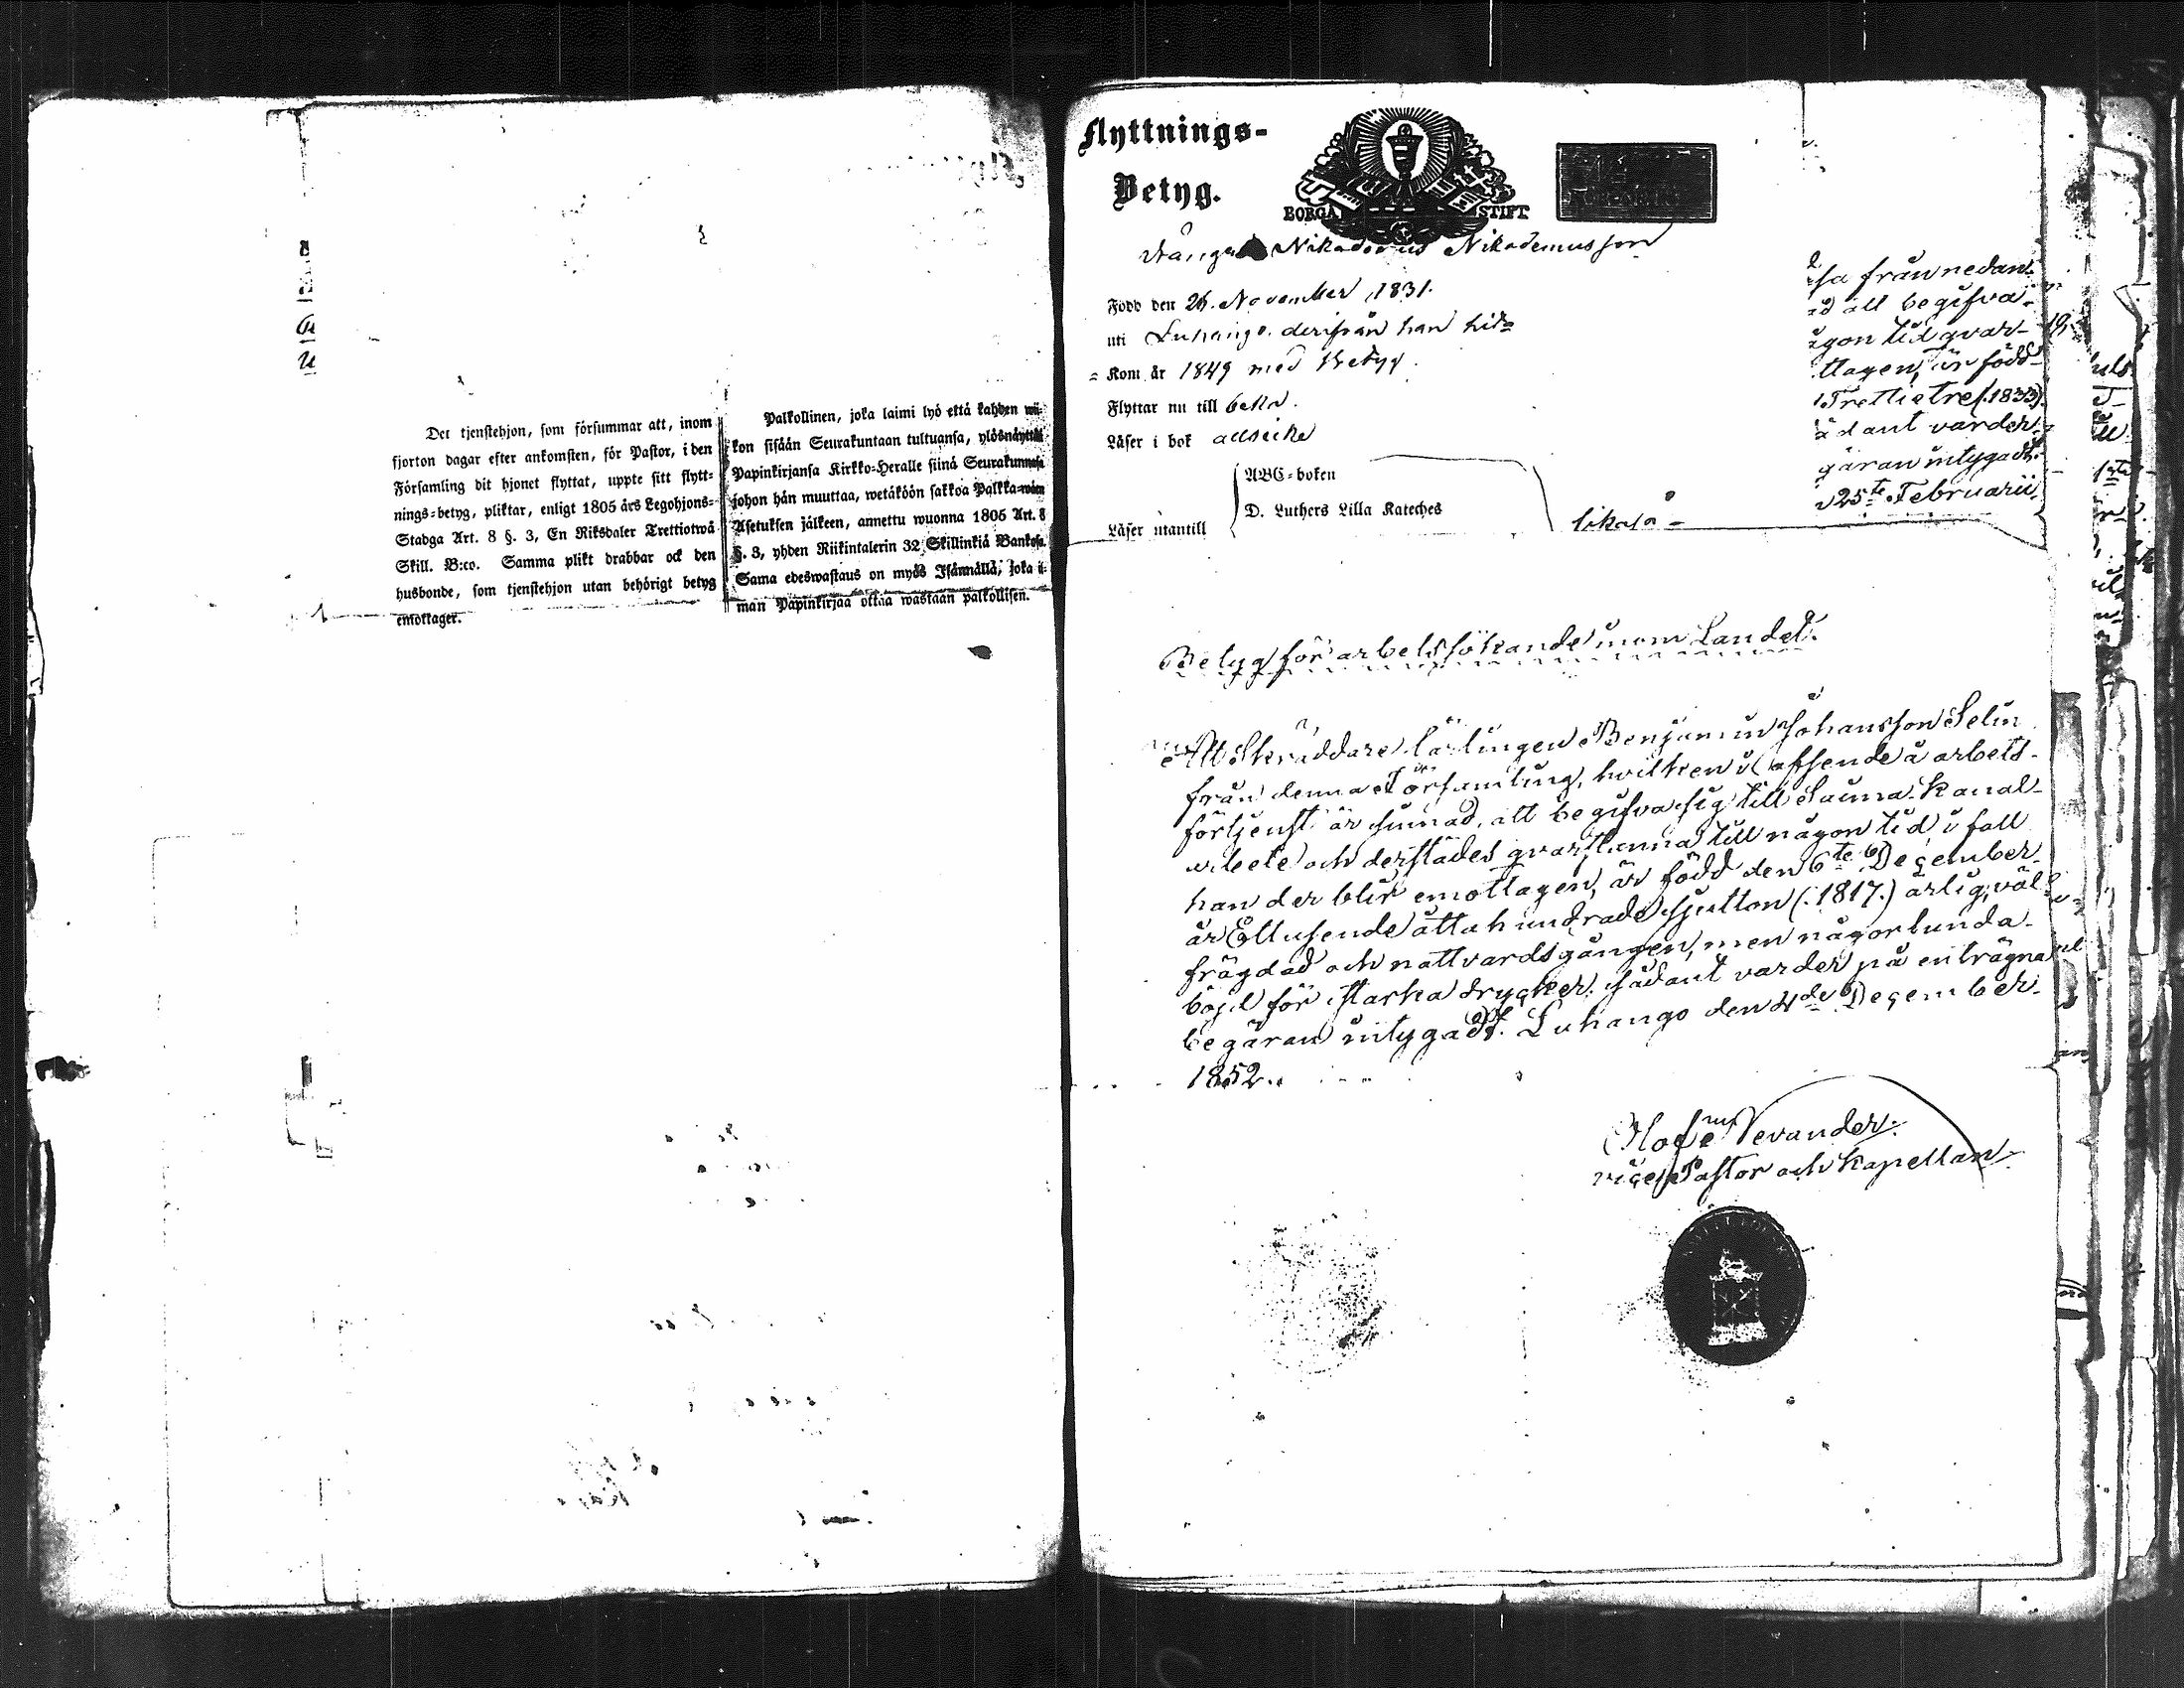 Det tjenstehjon, som försummar att, inom
fjorton dagar efter ankomsten, för Pastor, i den
Församling dit hjonet flyttat, uppte sitt flytt-
nings-betyg, pliktar, enligt 1805 års Legohjons-
Stadga Art. 8 §. 3, En Riksdaler Trettiotwå
Skill. B:co. Samma plikt drabbar ock den
husbonde, som tjenstehjon utan behörigt betyg
emottager.
Palkollinen, joka laimi lyö että kahden wii-
kon sisään Seurakuntaan tultuansa, ylösnäyttää
Papinkirjansa Kirkko-Heralle siinä Seurakunnasa
johon hän muuttaa, wetäköön sakkoa Palkka-wäen
Asetuksen jälkeen, annettu wuonna 1805 Art. 8
§. 3, yhden Riikintalerin 32 Skillinkiä Bankosa.
Sama edeswastaus on myös Isännällä, joka il-
man Papinkirjaa ottaa wastaan palkollisen.
Flyttnings-
Betyg.
BORGÅ STIFT
Nikodemus Nikodemusson
Född den 26. November 1831.
uti Luhango. derifrån han hit-
Kom år 1849 med Betyg.
Flyttar nu till
Läser i bok
ABC-boken
D. Luthers Lilla Kateches
Läser utantill
likaså
från nedan
att begifva
tid qvar-
ttagen, är född
Trettietre (1833)
varder
gäran intygadt.
25te Februarii
Betyg för arbetssökande inom Landet.
Att Skräddare lärlingen Benjamin Johansson Selin
från denna Församling, hvilken i afseende å arbets-
förtjenst är sinnad, att begifva sig till Saima-kanal-
arbete och derstädes qvarstanna till någon tid i fall
han der blir emottagen, är född den 6te December
år Ettusende åttahundrade sjutton (:1817.) ärlig, väl-
frägdad och nattvardsgången, men någorlunda
böjd för starka drycker; sådant varder på enträgna
begäran intygadt. Luhango den 4de December
1852.
Nevander.
vice Pastor och Kapellan